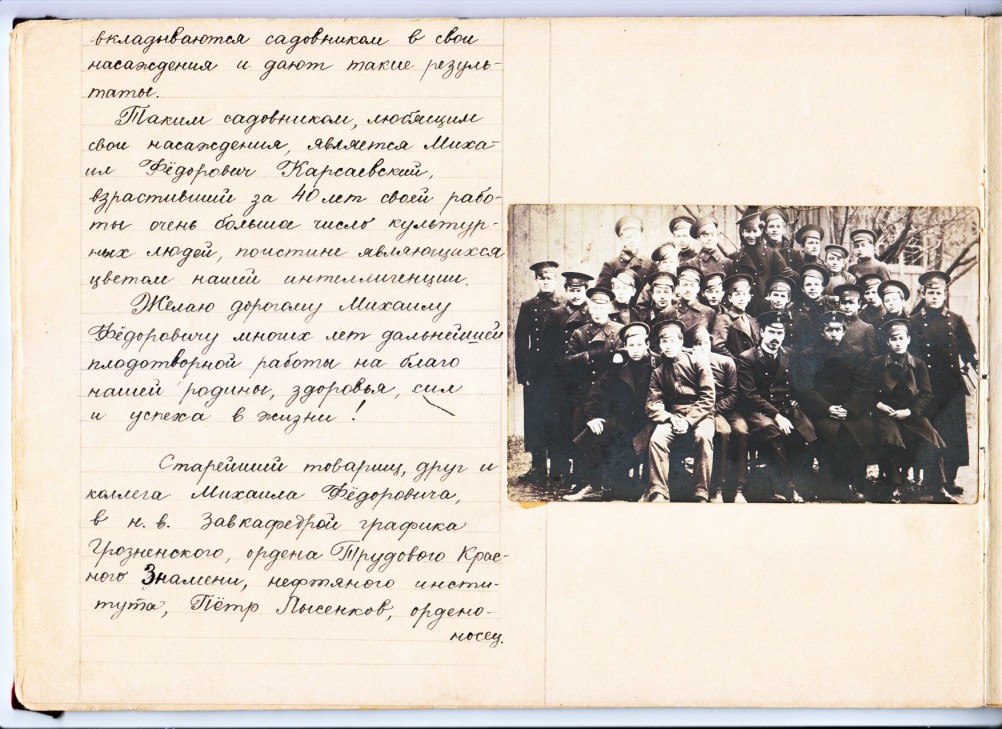 вкладываются садовником в свои
насаждения и дают такие резуль-
таты.
Таким садовником, любящим
свои насаждения, является Миха-
ил Фёдорович Карсаевский,
взрастивший за 40 лет своей рабо-
ты очень больша число культур-
ных людей, поистине являющихся
цветом нашей интеллигенции.
Желаю дорогому Михаилу
Фёдоровичу многих лет дальнейшей
плодотворной работы на благо
нашей родины, здоровья, сил
и успеха в жизни!
Старейший товарищ, друг и
коллега Михаила Фёдоровича,
в н. в. Завкафедрой графика
Грозненского, ордена Трудового Крас-
ного Знамени, нефтяного инсти-
тута, Пётр Лысенков, ордено-
носец.